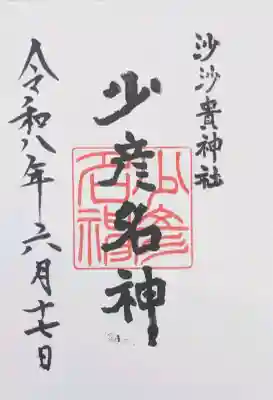 沙沙貴神社
少彦名神
令和八年六月十七日